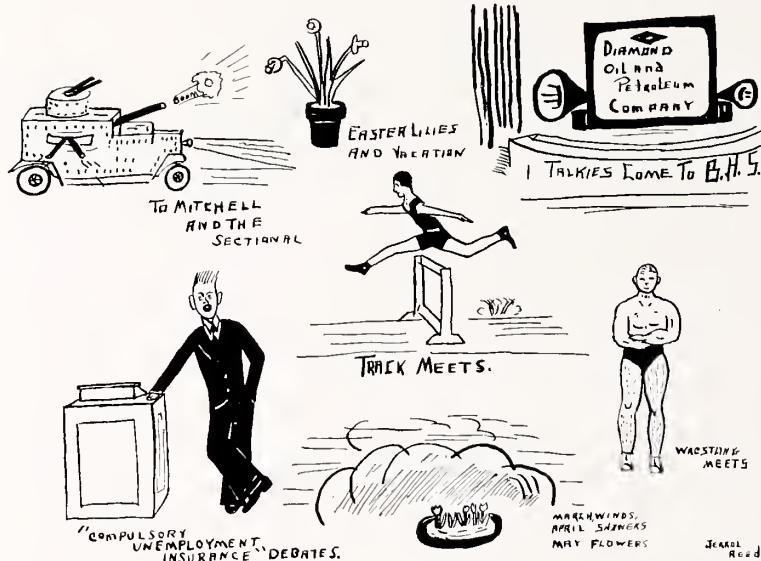 BOOM
TO MITCHELL
AND THE
SECTIONAL
EASTER LILIES
AND VACATION
DIAMOND
OIL AND
PETROLEUM
COMPANY
TALKIES COME TO B.H.S.
TRACK MEETS.
"COMPULSORY
UNEMPLOYMENT
INSURANCE" DEBATES.
MARCH WINDS,
APRIL SHOWERS
MAY FLOWERS
WRESTLING
MEETS
JERROL
REED